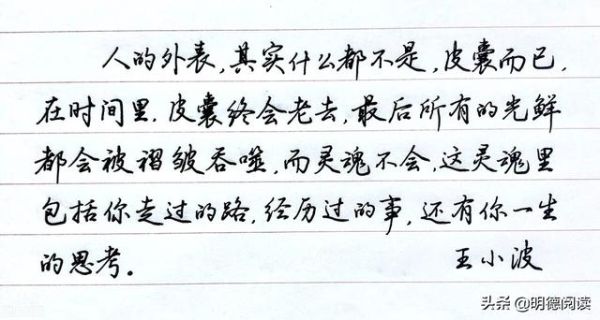 人的外表，其实什么都不是，皮囊而已，
在时间里，皮囊终会老去，最后所有的光鲜
都会被褶皱吞噬，而灵魂不会，这灵魂里
包括你走过的路，经历过的事，还有你一生
的思考。 王小波
头条@明德阅读